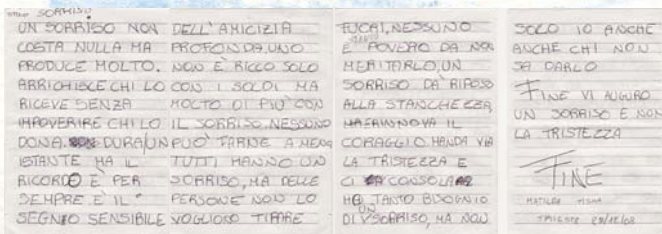 SORRISO
UN SORRISO NON
COSTA NULLA MA
PRODUCE MOLTO.
ARRICHISCE CHI LO
RICEVE SENZA
IMPOVERIRE CHI LO
DONA. DURA UN
ISTANTE MA IL
RICORDO È PER
SEMPRE. È IL
SEGNIO SENSIBILE
DELL'AMICIZIA
PROFONDA, UNO
NON È RICCO SOLO
CON I SOLDI MA
MOLTO DI PIÙ CON
IL SORRISO. NESSUNO
PUÒ FARNE A MENO
TUTTI HANNO UN
SORRISO, MA DELLE
PERSONE NON LO
VOGLIONO TIRARE
FUORI, NESSUNO
È POVERO DA NON
MERITARLO, UN
SORRISO DÀ RIPOSO
ALLA STANCHEZZA,
RINNOVA IL
CORAGGIO. MANDA VIA
LA TRISTEZZA E
CI CONSOLA
HO TANTO BISOGNIO
DI UN SORRISO, MA NON
SOLO IO ANCHE
ANCHE CHI NON
SA DARLO
FINE VI AUGURO
UN SORRISO E NON
LA TRISTEZZA
FINE
MATILDE
TRIESTE 29/12/08